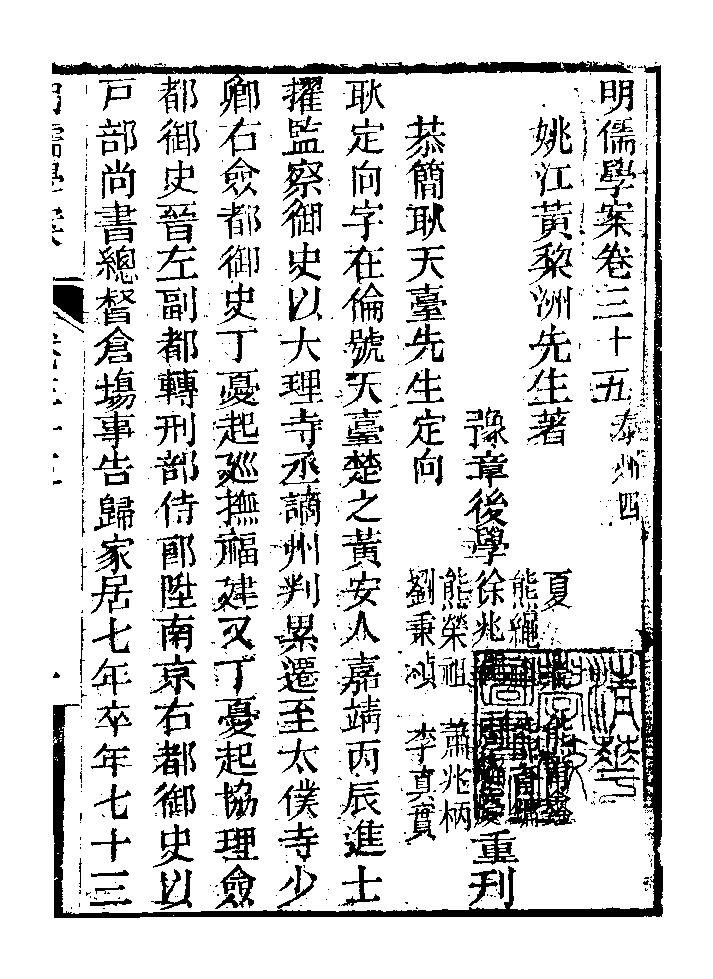 明儒學案卷三十五 泰州四
姚江黃黎洲先生著
夏
熊繩
豫章後學 徐兆 重刊
熊榮祖 蕭兆柄
劉秉 李真實
恭簡耿天臺先生定向
耿定向字在倫號天臺楚之黃安人嘉靖丙辰進士
擢監察御史以大理寺丞謫州判累遷至太僕寺少
卿右僉都御史丁憂起廵撫福建又丁憂起協理僉
都御史晉左副都轉刑部侍郎陞南京右都御史以
戸部尚書總督倉塲事告歸家居七年卒年七十三
明儒學案 卷三十五